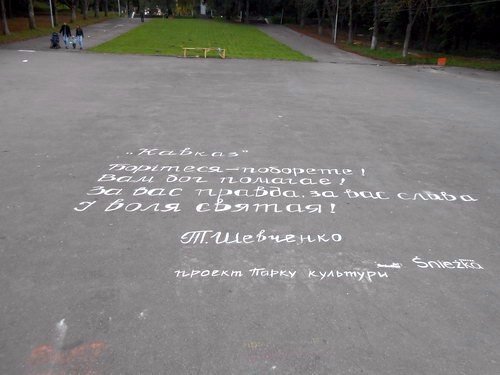 „Кавказ"
Борітеся – поборете!
Вам бог помагає!
За вас правда, за вас слава
І воля святая!
Т. Шевченко
проект Парку культури
Śnieżka